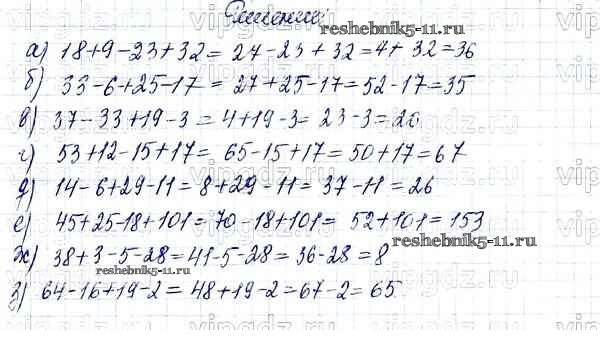 Решение:
reshebnik5-11.ru
а) 18+9-23+32= 27-23+32=4+32=36
б) 33-6+25-17 = 27+25-17=52-17=35
в) 37-33+19-3 = 4+19-3= 23-3=20
г) 53+12-15+17= 65-15+17=50+17=67
д) 14-6+29-11=8+29-11= 37-11=26
е) 45+25-18+101= 70-18+101= 52+101=153
reshebnik5-11.ru
ж) 38+3-5-28=41-5-28=36-28=8
reshebnik5-11.ru
з) 64-16+19-2 = 48+19-2=67-2=65